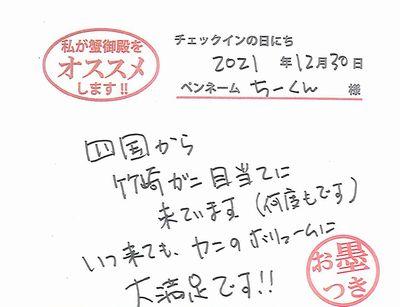 私が蟹御殿を
オススメ
します!!
チェックインの日にち
2021 年 12月 30日
ペンネーム ちーくん 様
四国から
竹崎ガニ目当てに
来ています(何度もです)
いつ来ても、カニのボリュームに
大満足です!!
お墨
つき